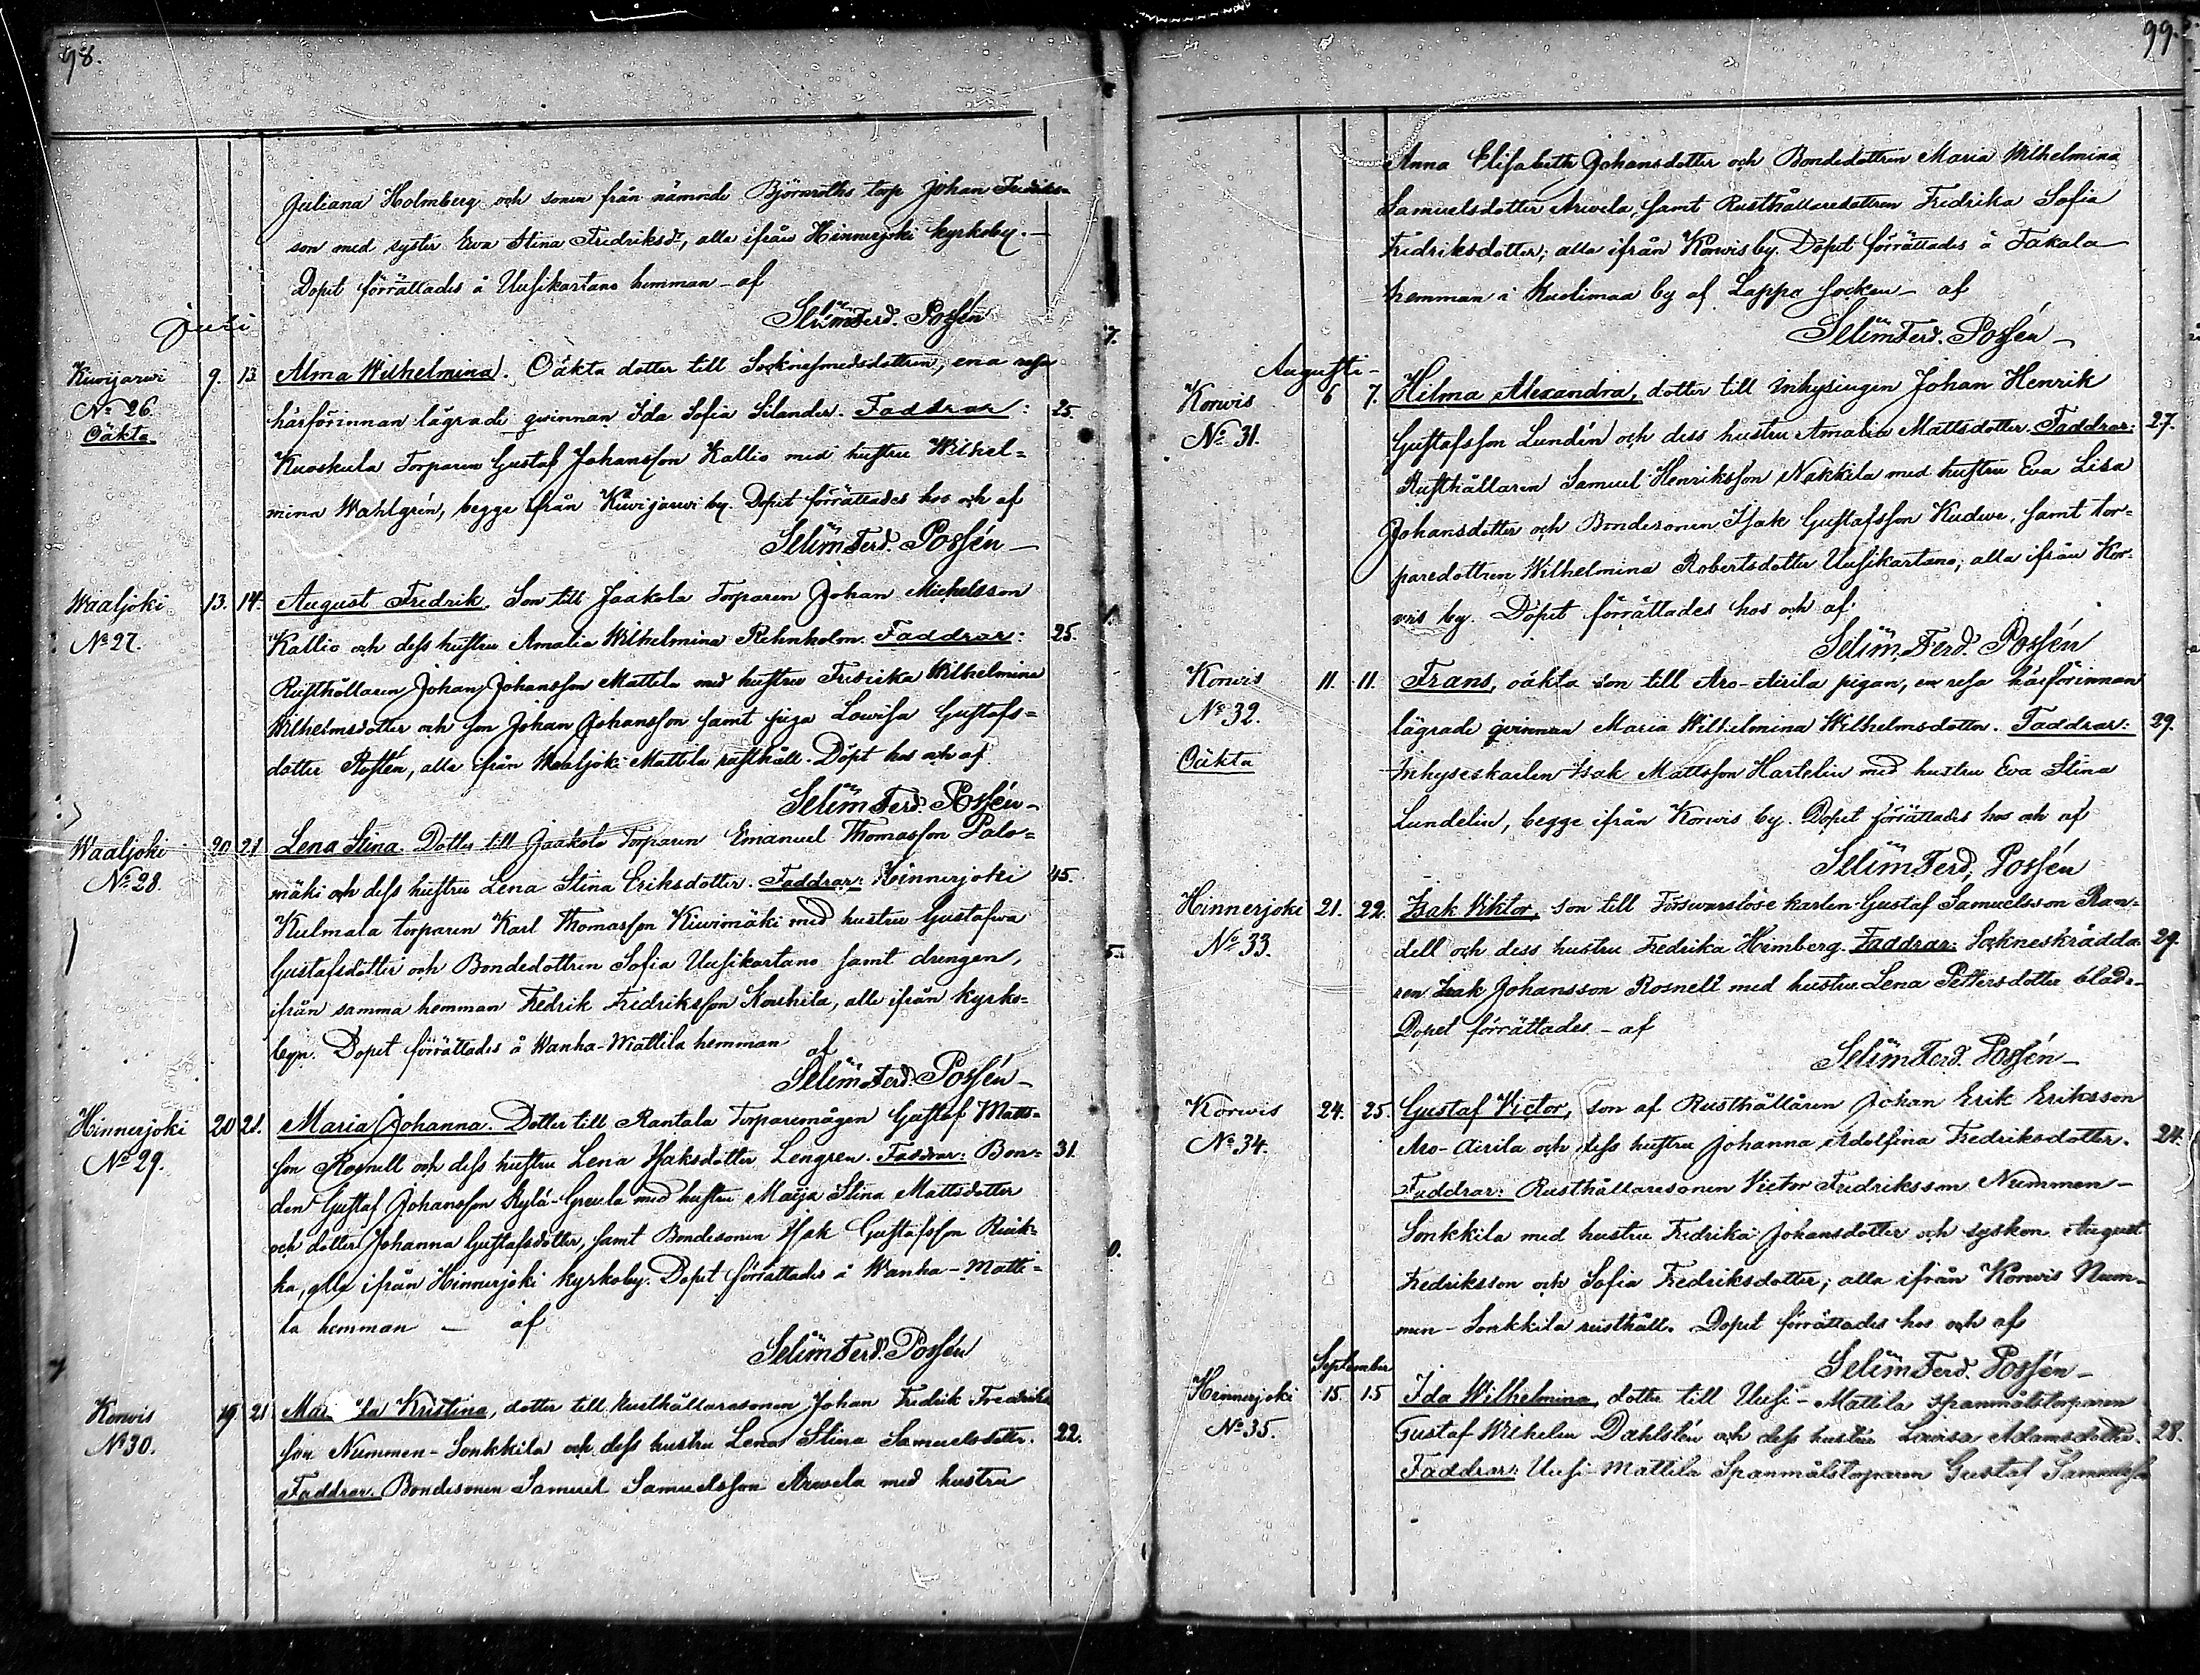 98.
Juliana Holmberg och sonen från nämnde Björnroths torp Johan Fredriks-
son med syster Eva Stina Fredriksdr, alla ifrån Hinnerjoki kyrkoby.
Dopet förrättades å Uusikartano hemman - af
Selim Ferd. Possén
Juli
Kiwijarwi 9. 13 Alma Wilhelmina. Oäkta dotter till Socknesmedsdottren, ena resa
No 26. härförinnan lägrade qvinnan Ida Sofia Silander. Faddrar: 25.
Oäkta
Kuoskula Torparen Gustaf Johansson Kallio med hustru Wilhel=
mina Wahlgrén, begge ifrån Kiwijarwi by. Dopet förrättades hos och af
Selim Ferd. Possén
Waaljoki 13. 14. August Fredrik. Son till Jaakola Torparen Johan Michelsson
No 27. Kallio och dess hustru Amalia Wilhelmina Rehnholm. Faddrar: 25.
Rusthållaren Johan Johansson Mattila med hustru Fredrika Wilhelmina
Wilhelmsdotter och son Johan Johansson samt piga Lowisa Gustafs=
dotter Rostén, alla ifrån Waaljoki Mattila rusthåll. Döpt hos och af
Selim Ferd. Possén
Waaljoki 20 21 Lena Stina. Dotter till Jaakola Torparen Emanuel Thomasson Palo=
No 28. mäki och dess hustru Lena Stina Eriksdotter. Faddrar: Hinnerjoki 45.
Kulmala torparen Karl Thomasson Kiwimäki med hustru Gustafwa
Gustafsdotter och Bondedottren Sofia Uusikartano samt drengen,
ifrån samma hemman Fredrik Fredriksson Kouhila, alla ifrån kyrko=
byn. Dopet förrättades å Wanha-Mattila hemman af
Selim Ferd. Possén
Hinnerjoki 20 21. Maria Johanna. Dotter till Rantala Torparemågen Gustaf Matts=
No 29. son Rosnell och dess hustru Lena Isaksdotter Lengren. Faddrar: Bon= 31.
den Gustaf Johansson Kylä-Greula med hustru Maija Stina Mattsdotter
och dotter Johanna Gustafsdotter, samt Bondesonen Isak Gustafsson Ruik=
ka, alla ifrån Hinnerjoki kyrkoby. Dopet förrättades å Wanha-Matti=
la hemman - af
Selim Ferd. Possén
Korwis 19. 21 Kristina, dotter till Rusthållaresonen Johan Fredrik Fredriks
No 30. son Nummen-Sonkkila och dess hustru Lena Stina Samuelsdotter. 22.
Faddrar. Bondesonen Samuel Samuelsson Arwela med hustru
99.
Anna Elisabeth Johansdotter och Bondedottren Maria Wilhelmina
Samuelsdotter Arwela, samt Rusthållaredottren Fredrika Sofia
Fredriksdotter; alla ifrån Korwis by. Dopet förrättades å Takala
hemman i Kuolimaa by af Lappo socken - af
Selim Ferd. Possén
Augusti
Korwis 6 7. Hilma Alexandra, dotter till inhysingen Johan Henrik
No 31. Gustafsson Lundén och dess hustru Amalia Mattsdotter. Faddrar: 27.
Rusthållaren Samuel Henriksson Nakkila med hustru Eva Lisa
Johansdotter och Bondesonen Isak Gustafsson Kudwe, samt tor=
paredottren Wilhelmina Robertsdotter Uusikartano; alla ifrån Kor=
wis by. Dopet förrättades hos och af
Selim Ferd. Possén
Korwis 11. 11. Frans, oäkta son till Aro-Airila pigan, en resa härförinnan
No 32. lägrade qvinnan Maria Wilhelmina Wilhelmsdotter. Faddrar: 29.
Oäkta Inhyseskarlen Isak Mattsson Hartelin med hustru Eva Stina
Lundelin, begge ifrån Korwis by. Dopet förrättades hos och af
Selim Ferd. Possén
Hinnerjoki 21. 22. Isak Viktor, son till Försvarslöse karlen Gustaf Samuelsson Ran=
No 33. dell och dess hustru Fredrika Heimberg. Faddrar: Sockneskrädda 29.
ren Isak Johansson Rosnell med hustru Lena Pettersdotter
Dopet förrättades - af
Selim Ferd. Possén
Korwis 24. 25. Gustaf Victor, son af Rusthållaren Johan Erik Eriksson
No 34. Aro-Airila och dess hustru Johanna Adolfina Fredriksdotter. 24.
Faddrar: Rusthållaresonen Victor Fredriksson Nummen-
Sonkkila med hustru Fredrika Johansdotter och syskon August
Fredriksson och Sofia Fredriksdotter; alla ifrån Korwis Num-
men-Sonkkila rusthåll. Dopet förrättades hos och af
Selim Ferd. Possén
September
Hinnerjoki 15. 15 Ida Wilhelmina, dotter till Uusi-Mattila spanmålstorparen
No 35. Gustaf Wilhelm Dahlstén och dess hustru Lovisa Adamsdotter. 28.
Faddrar: Uusi Mattila Spanmålstorparen Gustaf Samuelsson